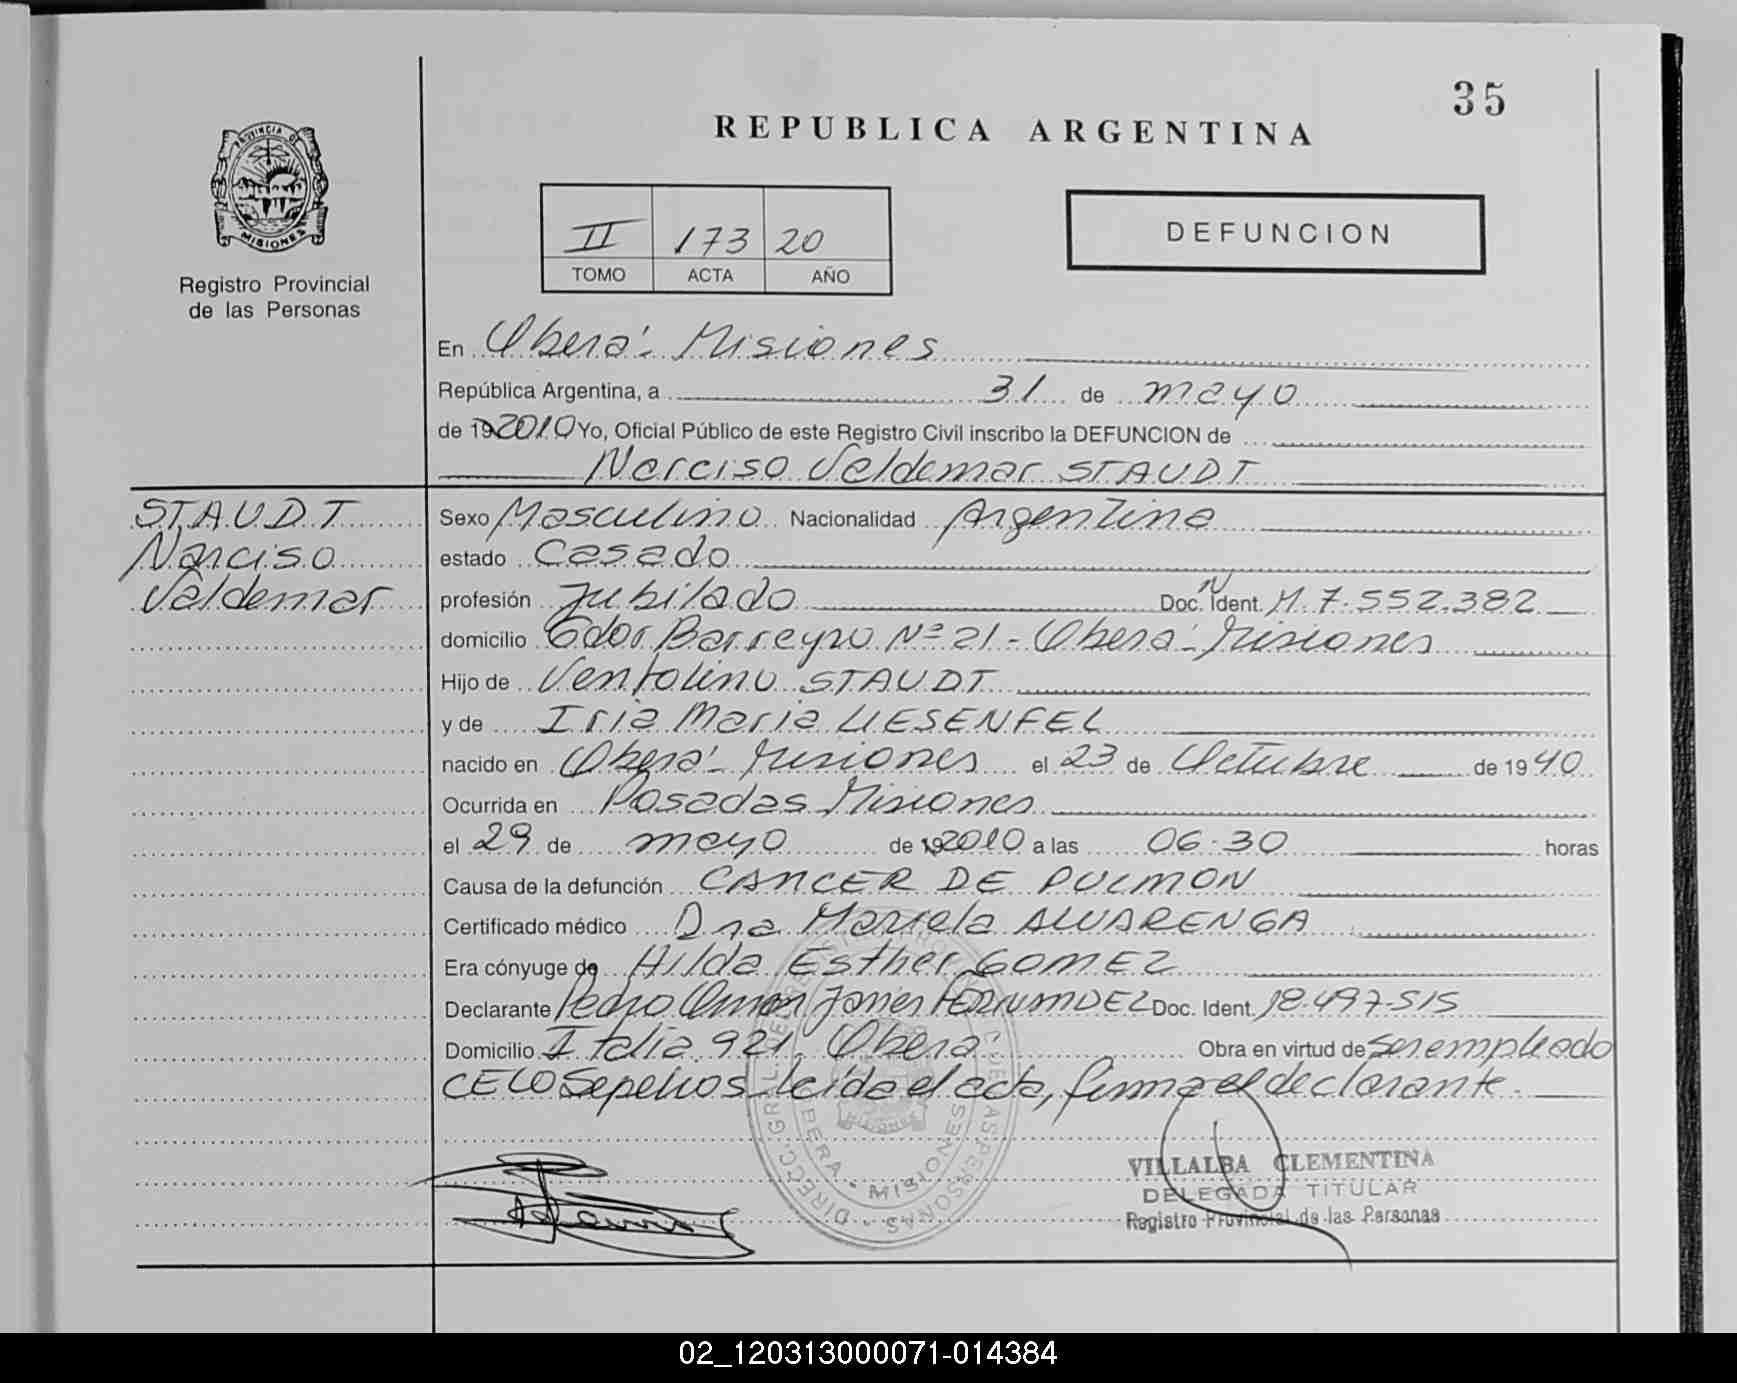 35
REPUBLICA ARGENTINA
PROVINCIA DE
MISIONES
Registro Provincial
de las Personas
II 173 20
TOMO ACTA AÑO
DEFUNCION
En Oberá - Misiones
República Argentina, a 31 de mayo
de 192010 Yo, Oficial Público de este Registro Civil inscribo la DEFUNCION de
Narciso Valdemar STAUDT
STAUDT
Narciso
Valdemar
Sexo Masculino Nacionalidad Argentina
estado Casado
profesión Jubilado Doc. N Ident. M. 7.552.382
domicilio Gdor Barreyro Nº 21 - Oberá - Misiones
Hijo de Ventolino STAUDT
y de Iria Maria LIESENFEL
nacido en Oberá - Misiones el 23 de Octubre de 1940
Ocurrida en Posadas Misiones
el 29 de mayo de 192010 a las 06:30 horas
Causa de la defunción CANCER DE PULMON
Certificado médico Dra Mariela ALVARENGA
Era cónyuge de Hilda Esther GOMEZ
Declarante Pedro Omar Javier FERNANDEZ Doc. Ident. 18.497.515
Domicilio Italia 921, Oberá Obra en virtud de ser empleado
CELO Sepelios leída el acta, firma el declarante.
OBERA - MISIONES
VILLALBA CLEMENTINA
DELEGADA TITULAR
Registro Provincial de las Personas
02_120313000071-014384